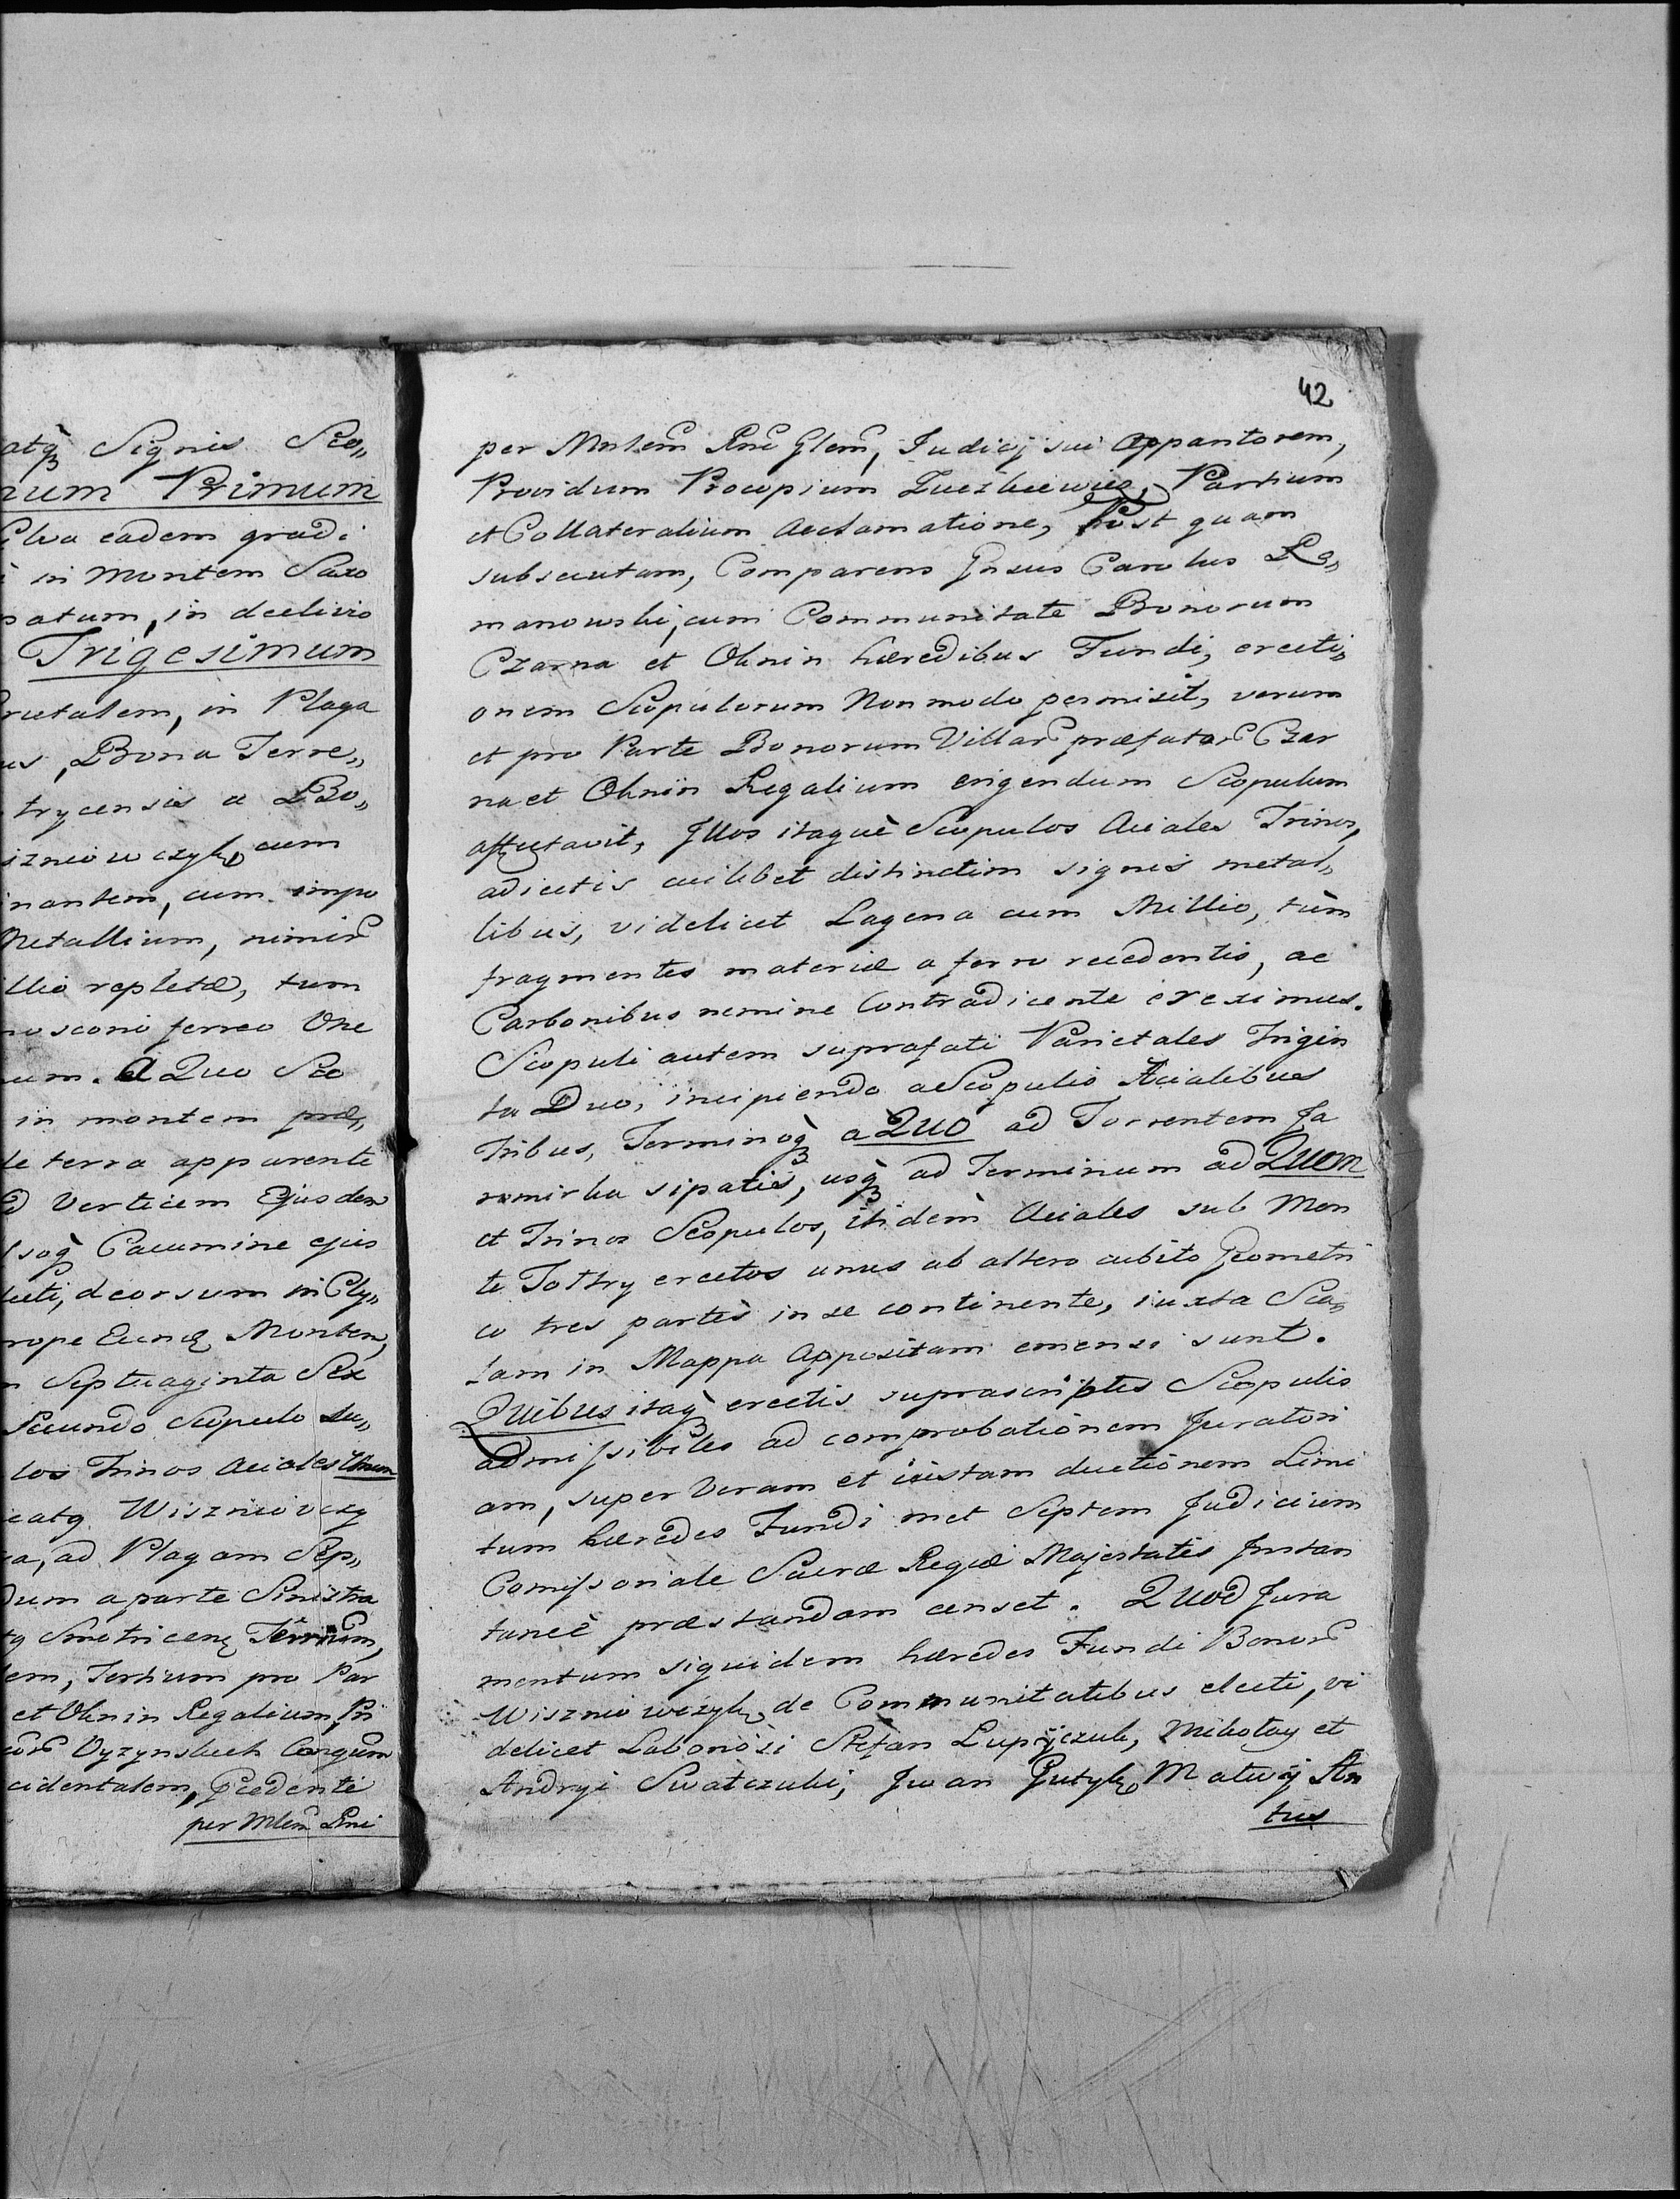 atq̀ Signis Sco„
num Primum
Silva eadem gradi
in Montem Saxo
natum, in declivio
Trigesimum
Parietalem, in Plaga
us, Bona Terre„
trycensis a Bo„
iszniowczyk, cum
inantem, cum impo
Metallium, nimir̃
llio repletæ, tum
no sconi ferreo One
um. A Quo Sco
in montem præ„
de terra apparente
d Verticem Ejusdem
soq̀ Cacumine ejus
lecti, deorsum in Cly„
prope Eund Montem,
n Septuaginta Sex
Secundo Scopulo du„
los Trinos Aciales Unum
catq Wiszniovczy
ra, ad Plagam Sep„
dum a parte Sinistra
tq Smotricen Terrium,
lem, Tertium pro Par
et Oknin Regalium, Pri
Vyzynskich Cong̃um
cidentalem, Præcedente
per Mlem Rni
42
per Mnlem Rni Glem, Judicij sui Apparitorem,
Providum Procopium Zuczkiewicz, Partium
et Collateralium Acclamatione, Post quam
subsecutam, Comparens Gnsus Carolus Ro„
manowski, cum Communitate Bonorum
Czarna et Oknin hæredibus Fundi, erecti„
onem Scopulorum Non modo permisit, verum
et pro Parte Bonorum Villar̃ præfatar̃ Czar
na et Oknin Regalium erigendum Scopulum
affectavit, Illos itaquè Scopulos Aciales Trinos,
adiectis cuilibet distinctim signis metal„
libus, videlicet Lagena cum Millio, tùm
fragmentis materiæ a ferro recedentis, ac
Carbonibus nemine Contradicente ereximus.
Scopuli autem suprafati Parietales Trigin
ta Duo, incipiendo a Scopulis Acialibus
Tribus, Terminoq̀ a QUO ad Torrentem Ja
romirka sipatis, usq̀ ad Terminum ad QUEM
et Trinos Scopulos, itidem Aciales sub Mon
te Toltry erectos unus ab altero cubito Geometri
co tres partes in se continente, iuxta Sca„
lam in Mappa Appositam emensi sunt.
Quibus itaq̀ erectis suprascriptis Scopulis
admissibiles ad comprobationem Juratori
am, super Veram et iustam ductionem Limi
tum hæredes Fundi met Septem Judicium
Comissoriale Sacræ Regiæ Majestatis Instan
taneè præstandam censet. QUOD Jura
mentum siquidem hæredes Fundi Bonor̃
Wiszniowczyk de Communitatibus electi, vi
delicet Laboriosi Stefan Lupyczuk, Mikołay et
Andryi Swatczuki, Jwan Gutyk, Matwij An
tus